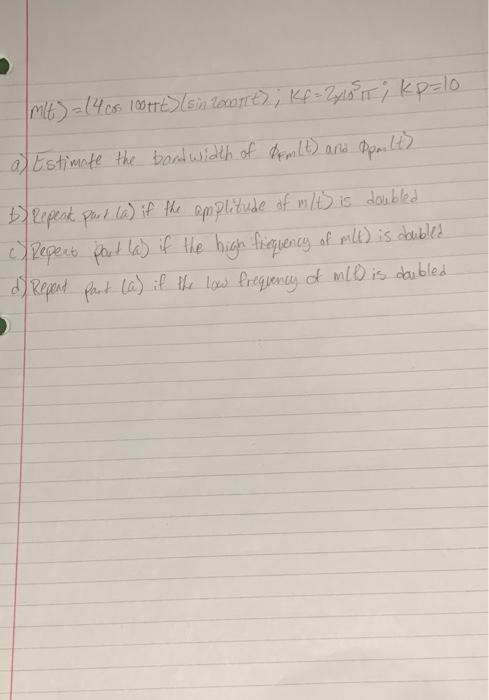 m(t) = (4 cos 100πt)(sin 2000πt); kf = 2x10⁵π; kp=10
a) Estimate the bandwidth of ϕFm(t) and ϕpm(t)
b) Repeat part (a) if the amplitude of m(t) is doubled
c) Repeat part (a) if the high frequency of m(t) is doubled
d) Repeat part (a) if the low frequency of m(t) is doubled